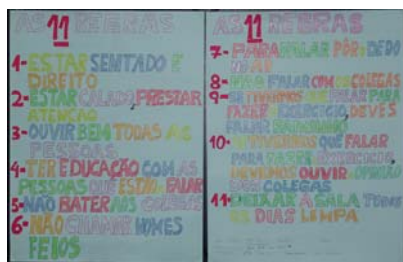 AS 11 REGRAS
1- ESTAR SENTADO E
DIREITO
2- ESTAR CALADO, PRESTAR
ATENÇÃO
3- OUVIR BEM TODAS AS
PESSOAS
4- TER EDUCAÇÃO COM AS
PESSOAS QUE ESTÃO A FALAR
5- NÃO BATER AOS COLEGAS
6- NÃO CHAMAR NOMES
FEIOS
AS 11 REGRAS
7- PARA FALAR PÔR O DEDO
NO AR
8- NÃO FALAR COM OS COLEGAS
9- SE TIVERMOS QUE FALAR PARA
FAZER O EXERCÍCIO, DEVES
FALAR BAIXINHO
10- SE TIVERMOS QUE FALAR
PARA FAZER EXERCÍCIO,
DEVEMOS OUVIR A OPINIÃO
DOS COLEGAS
11- DEIXAR A SALA TODOS
OS DIAS LIMPA